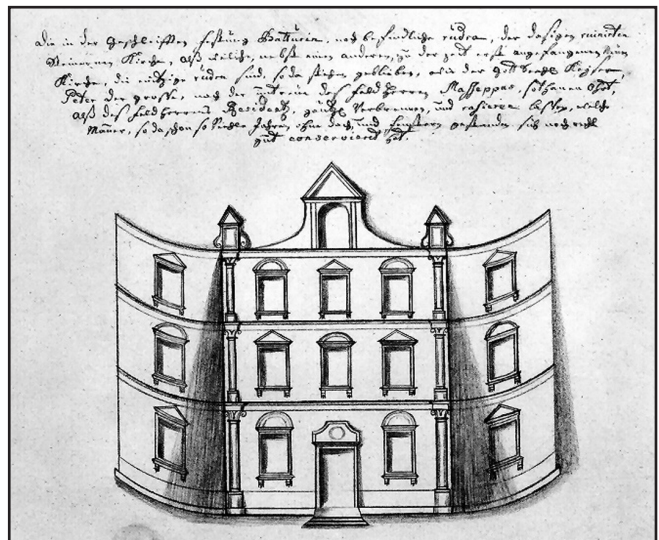 die in der Geschleifften festung Battúrin noch befindliche rúdera, der dasigen ruinirten
Steinernen Kirche, alß welche, nebst einer anderen, zu der zeit erst angefangenen
Kirche, die eintzige sind, so da stehen geblieben, wie der Kayser,
Peter der große, nach der des feldherren Masseppas, sothanen Ohrt,
alß des feldherrens Residentz, gäntzl. Verbrennen, und rasiren laßen, welche
Mauer, so da schon so viehle Jahren ohne dach und fenstern gestanden, sich noch recht
gút conserviret hat.